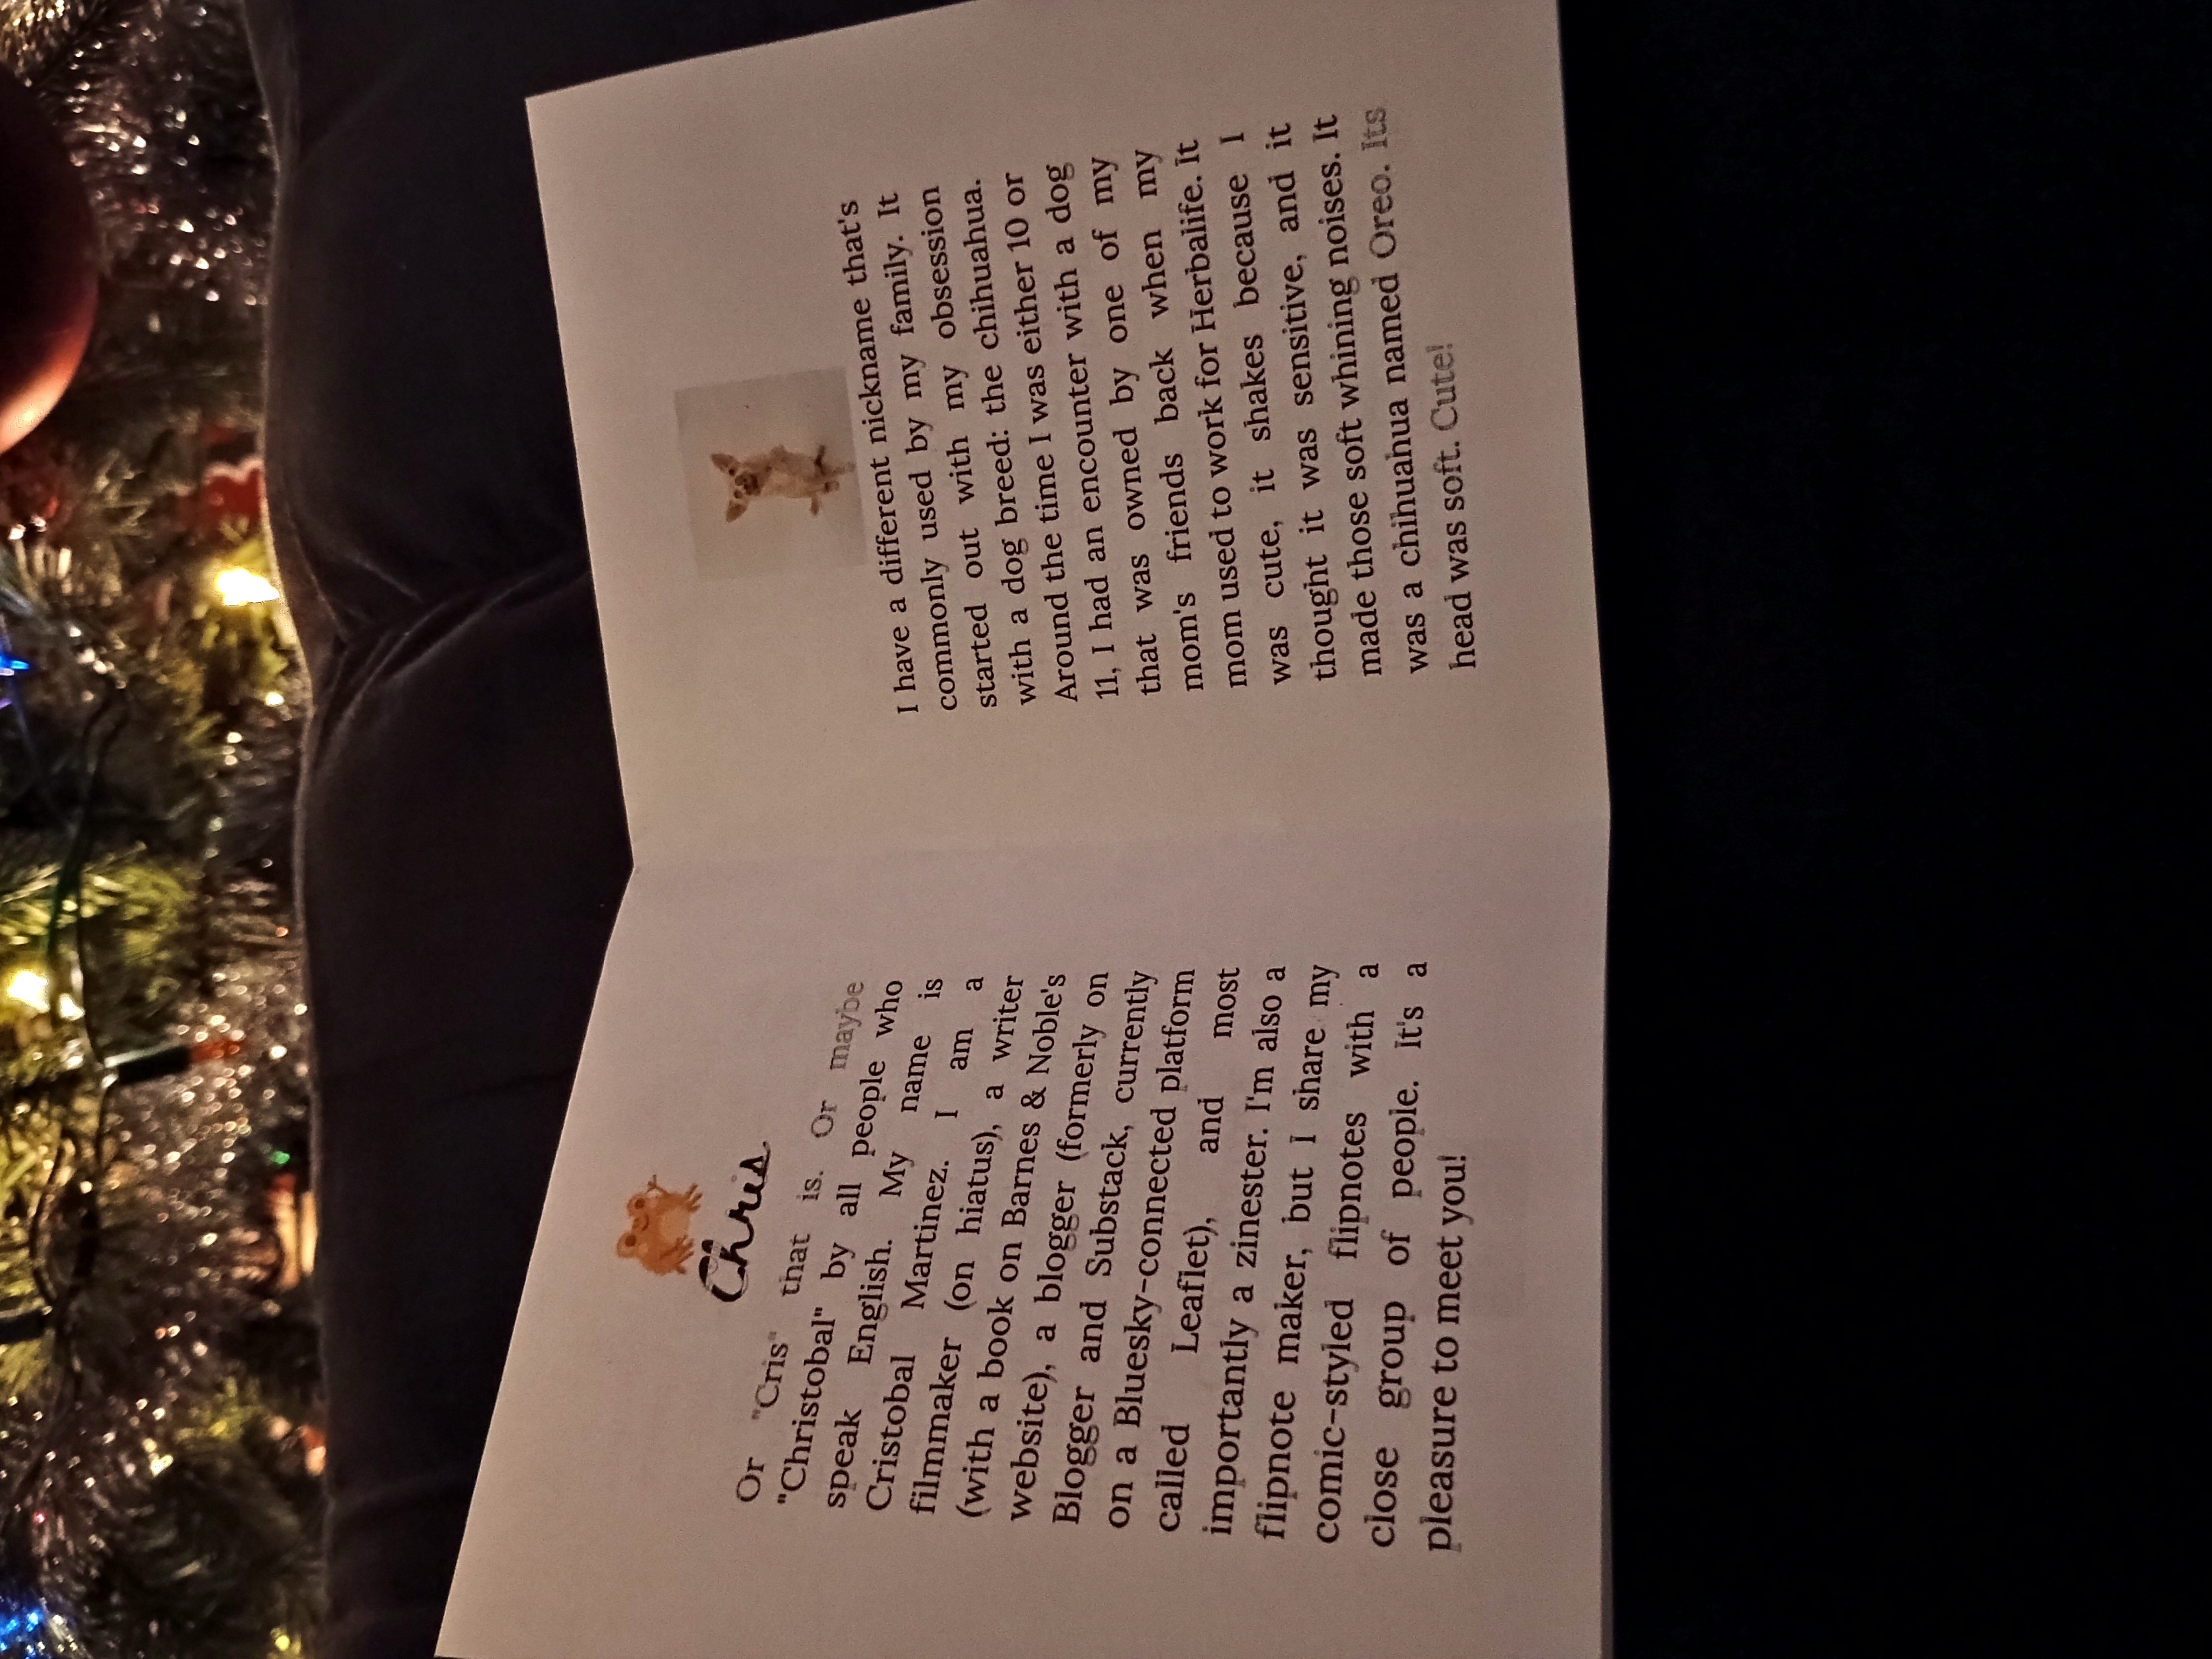 Chris
Or "Cris" that is. Or maybe
"Christobal" by all people who
speak English. My name is
Cristobal Martinez. I am a
filmmaker (on hiatus), a writer
(with a book on Barnes & Noble's
website), a blogger (formerly on
Blogger and Substack, currently
on a Bluesky-connected platform
called Leaflet), and most
importantly a zinester. I'm also a
flipnote maker, but I share my
comic-styled flipnotes with a
close group of people. It's a
pleasure to meet you!
I have a different nickname that's
commonly used by my family. It
started out with my obsession
with a dog breed: the chihuahua.
Around the time I was either 10 or
11, I had an encounter with a dog
that was owned by one of my
mom's friends back when my
mom used to work for Herbalife. It
was cute, it shakes because I
thought it was sensitive, and it
made those soft whining noises. It
was a chihuahua named Oreo. Its
head was soft. Cute!